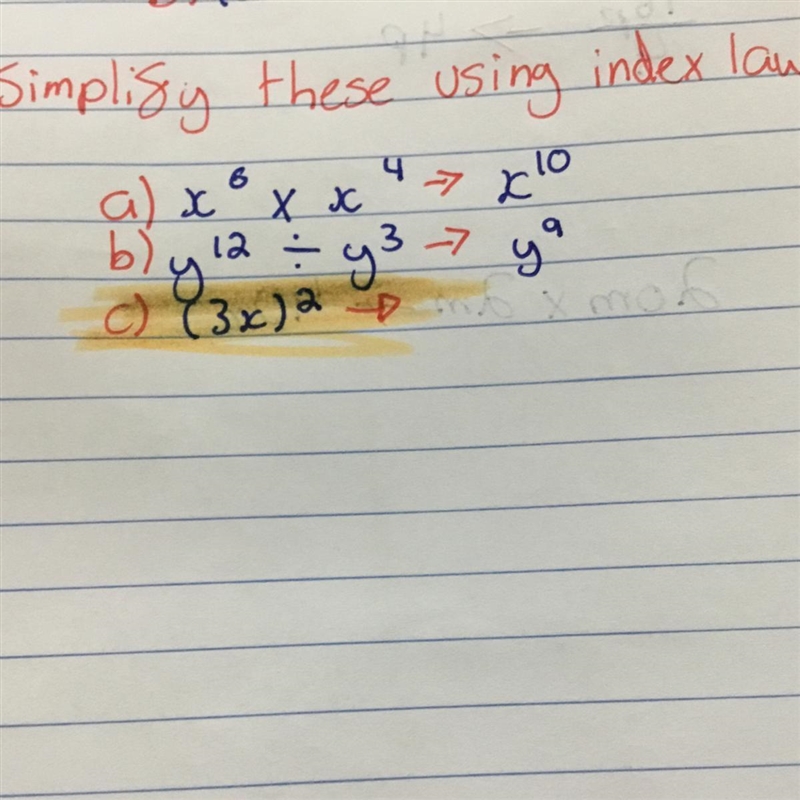 Simplify these using index law
a) x⁶ × x⁴ → x¹⁰
b) y¹² ÷ y³ → y⁹
c) (3x)² →